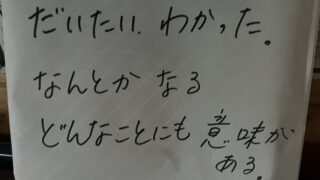 だいたい、わかった。
なんとか なる
どんなことにも 意味が
ある。